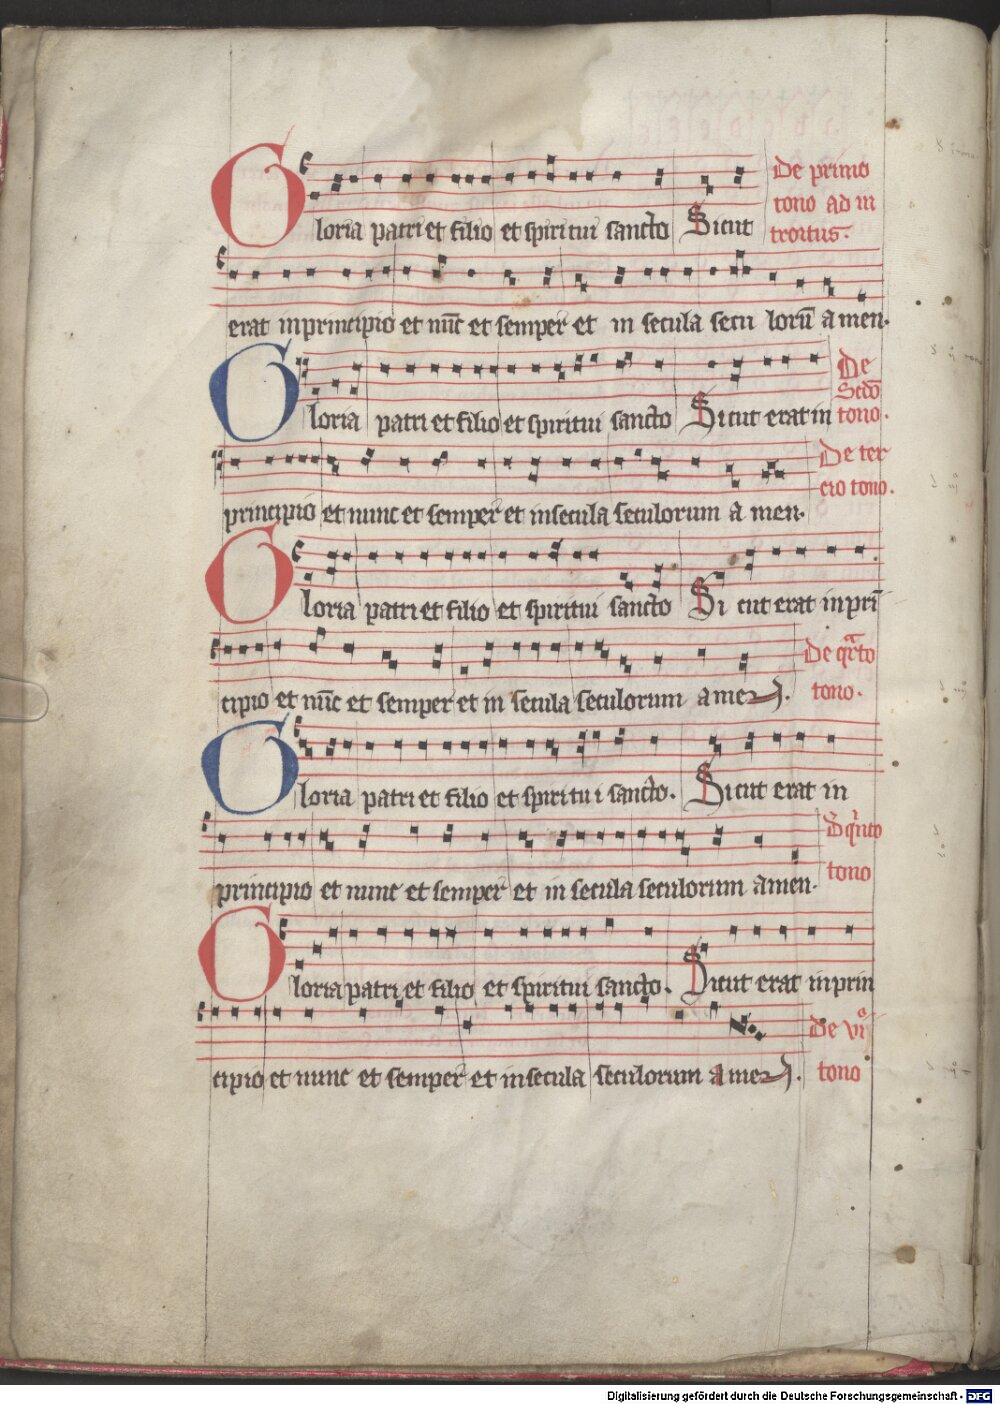 Gloria patri et filio et spiritui sancto Sicut De primo
tono ad in
troitus.
erat in principio et nu̅c et semper et in secula secu loru̅ amen.
Gloria patri et filio et spiritui sancto Sicut erat in De
Sc̅do
tono.
principio et nunc et semper et in secula seculorum amen. De ter
cio tono.
Gloria patri et filio et spiritui sancto Sicut erat in pri̅
cipio et nu̅c et semper et in secula seculorum amen. De q̅rto
tono.
Gloria patri et filio et spiritui sancto. Sicut erat in
principio et nunc et semper et in secula seculorum amen. D̅ qi̅nto
tono
Gloria patri et filio et spiritui sancto. Sicut erat in prin
cipio et nunc et semper et in secula seculorum amen. De vi̊
tono
Digitalisierung gefördert durch die Deutsche Forschungsgemeinschaft - DFG